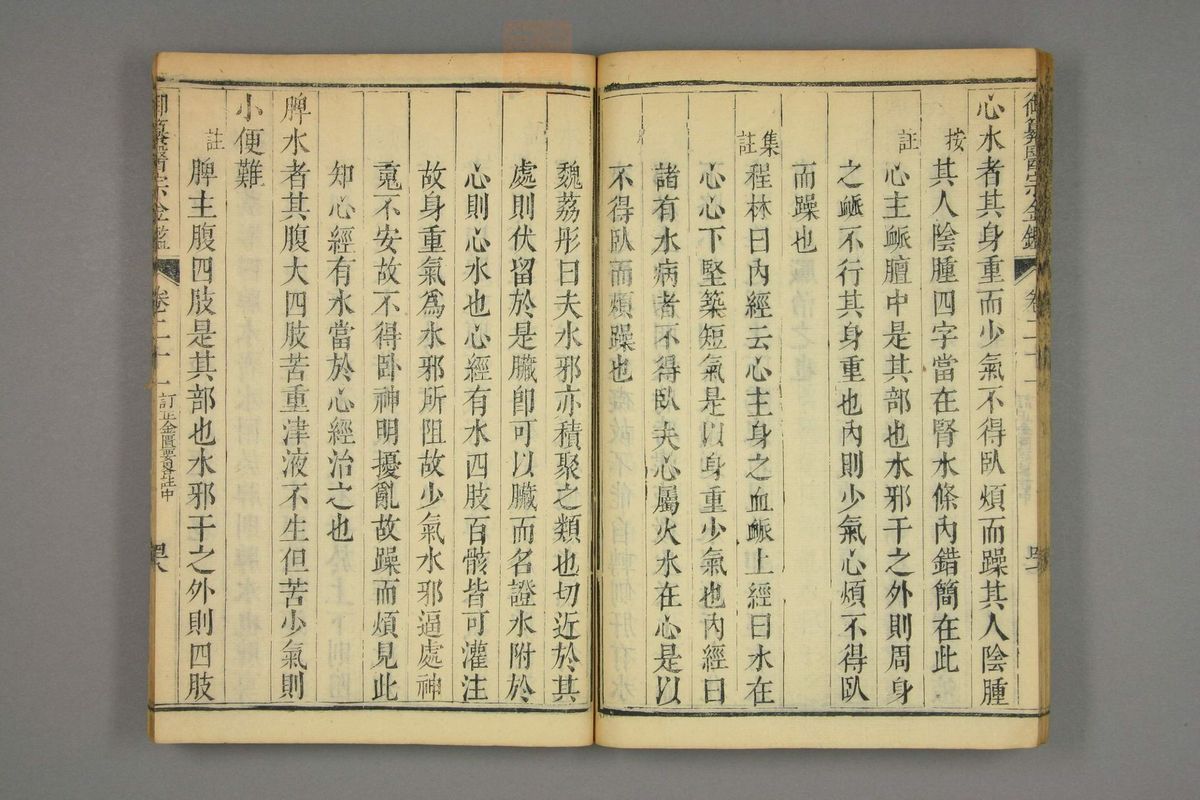 御纂醫宗金鑑 卷二十一
心水者其身重而少氣不得臥煩而躁其人陰腫
按 其人陰腫四字當在腎水條內錯簡在此
註 心主衇膻中是其部也水邪干之外則周身
之衇不行其身重也內則少氣心煩不得臥
而躁也
集註 程林曰內經云心主身之血衇上經曰水在
心心下堅築短氣是以身重少氣也內經曰
諸有水病者不得臥夫心屬火水在心是以
不得臥而煩躁也
魏荔彤曰夫水邪亦積聚之類也切近於其
處則伏留於是臟卽可以臟而名證水附於
心則心水也心經有水四肢百骸皆可灌注
故身重氣爲水邪所阻故少氣水邪逼處神
䰟不安故不得卧神明擾亂故躁而煩見此
知心經有水當於心經治之也
脾水者其腹大四肢苦重津液不生但苦少氣則
小便難
註 脾主腹四肢是其部也水邪干之外則四肢
御纂醫宗金鑑 卷二十一 訂正金匱要畧註中